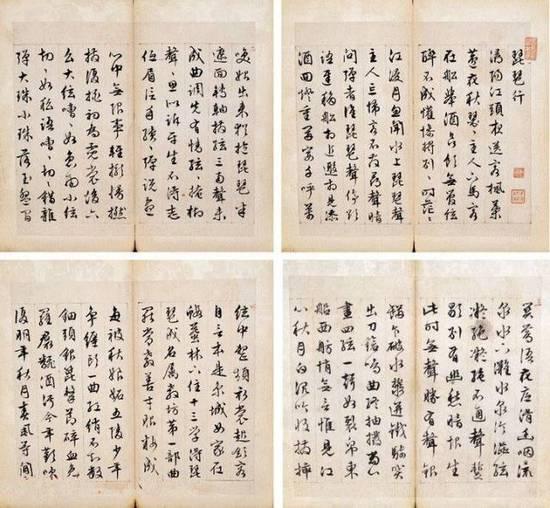 琵琶行
潯陽江頭夜送客楓葉
荻花秋瑟瑟主人下馬客
在船舉酒欲飲無管弦
醉不成歡慘將別別時茫茫
江浸月忽聞水上琵琶聲
主人忘歸客不發尋聲暗
問彈者誰琵琶聲停欲
語遲移船相近邀相見添
酒回燈重開宴千呼萬
喚始出來猶抱琵琶半
遮面轉軸撥弦三兩聲未
成曲調先有情弦弦掩抑
聲聲思似訴平生不得志
低眉信手續續彈說盡
心中無限事輕攏慢撚
抹復挑初為霓裳後六
么大弦嘈嘈如急雨小弦
切切如私語嘈嘈切切錯雜
彈大珠小珠落玉盤間
關鶯語花底滑幽咽流
泉水下灘水泉冷澀弦
凝絕凝絕不通聲暫
歇別有幽愁暗恨生
此時無聲勝有聲銀
瓶乍破水漿迸鐵騎突
出刀鎗鳴曲終抽撥當心
畫四弦一聲如裂帛東
船西舫悄無言惟見江
心秋月白沉吟收撥插
弦中整頓衣裳起斂容
自言本是京城女家在
蝦蟇陵下住十三學得琵
琶成名屬教坊第一部曲
罷常教善才服妝成
每被秋娘妒五陵少年
爭纏頭一曲紅綃不知數
鈿頭銀篦擊節碎血色
羅裙翻酒污今年歡笑
復明年秋月春風等閒